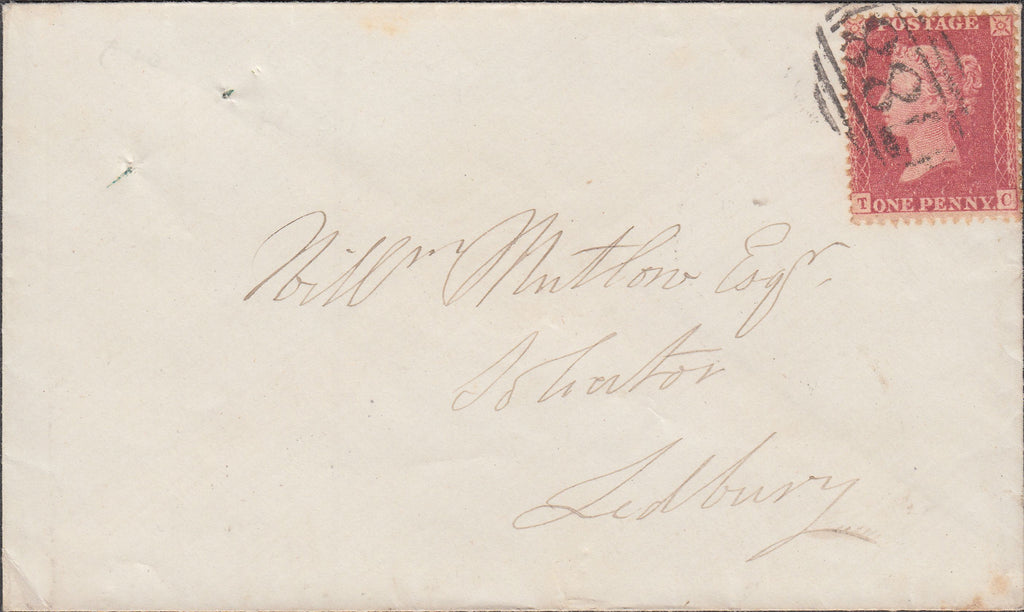 POSTAGE
T ONE PENNY. C
Will^m Mutlow Esq^r.
Solicitor
Ledbury